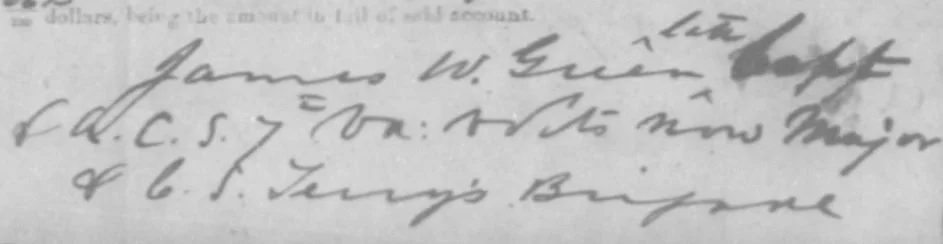 dollars, being the amount in full of said account.
James W. Green late Capt
& A. C. S. 7 = Va: Vols now Major
& C. S. Terry's Brigade